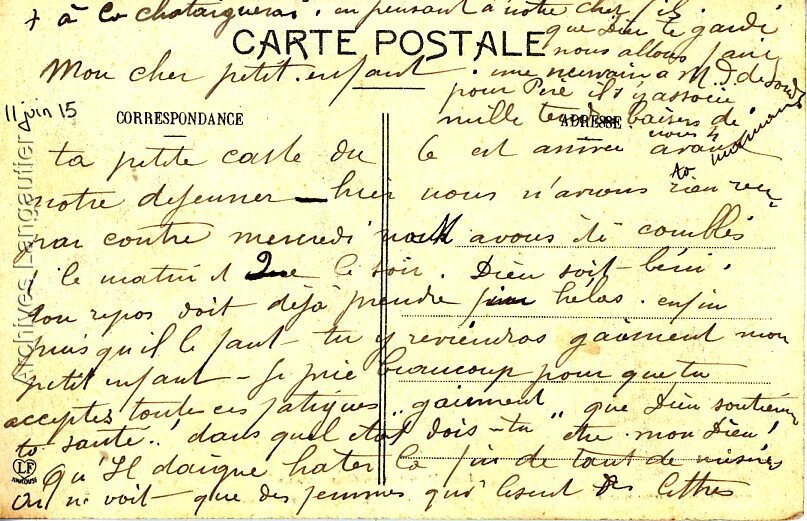 + à La chataigneraie, en pensant à notre cher fils
que Dieu te garde
nous allons faire
une neuvaine à
CARTE POSTALE
Mon cher petit enfant.
pour Père il s'y associe
mille tendres baisers de
nous 4
maman
11 juin 15
CORRESPONDANCE
ADRESSE
ta petite carte du 6 est arrivée avant
notre déjeuner - hier nous n'avions rien reçu
par contre mercredi nous avons été comblés
1 le matin et 2 le soir. Dieu soit béni!
ton repos doit déjà prendre fin hélas. enfin
puisqu'il le faut - tu y reviendras gaiement mon
petit enfant - Je prie beaucoup pour que tu
acceptes toutes ces fatigues "gaiement" que Dieu soutienne
ta santé.. dans quel état dois-tu être mon Dieu!
Qu'Il daigne hâter la fin de tant de misères
On ne voit que des femmes qui lisent des lettres
LF
Archives Langautier